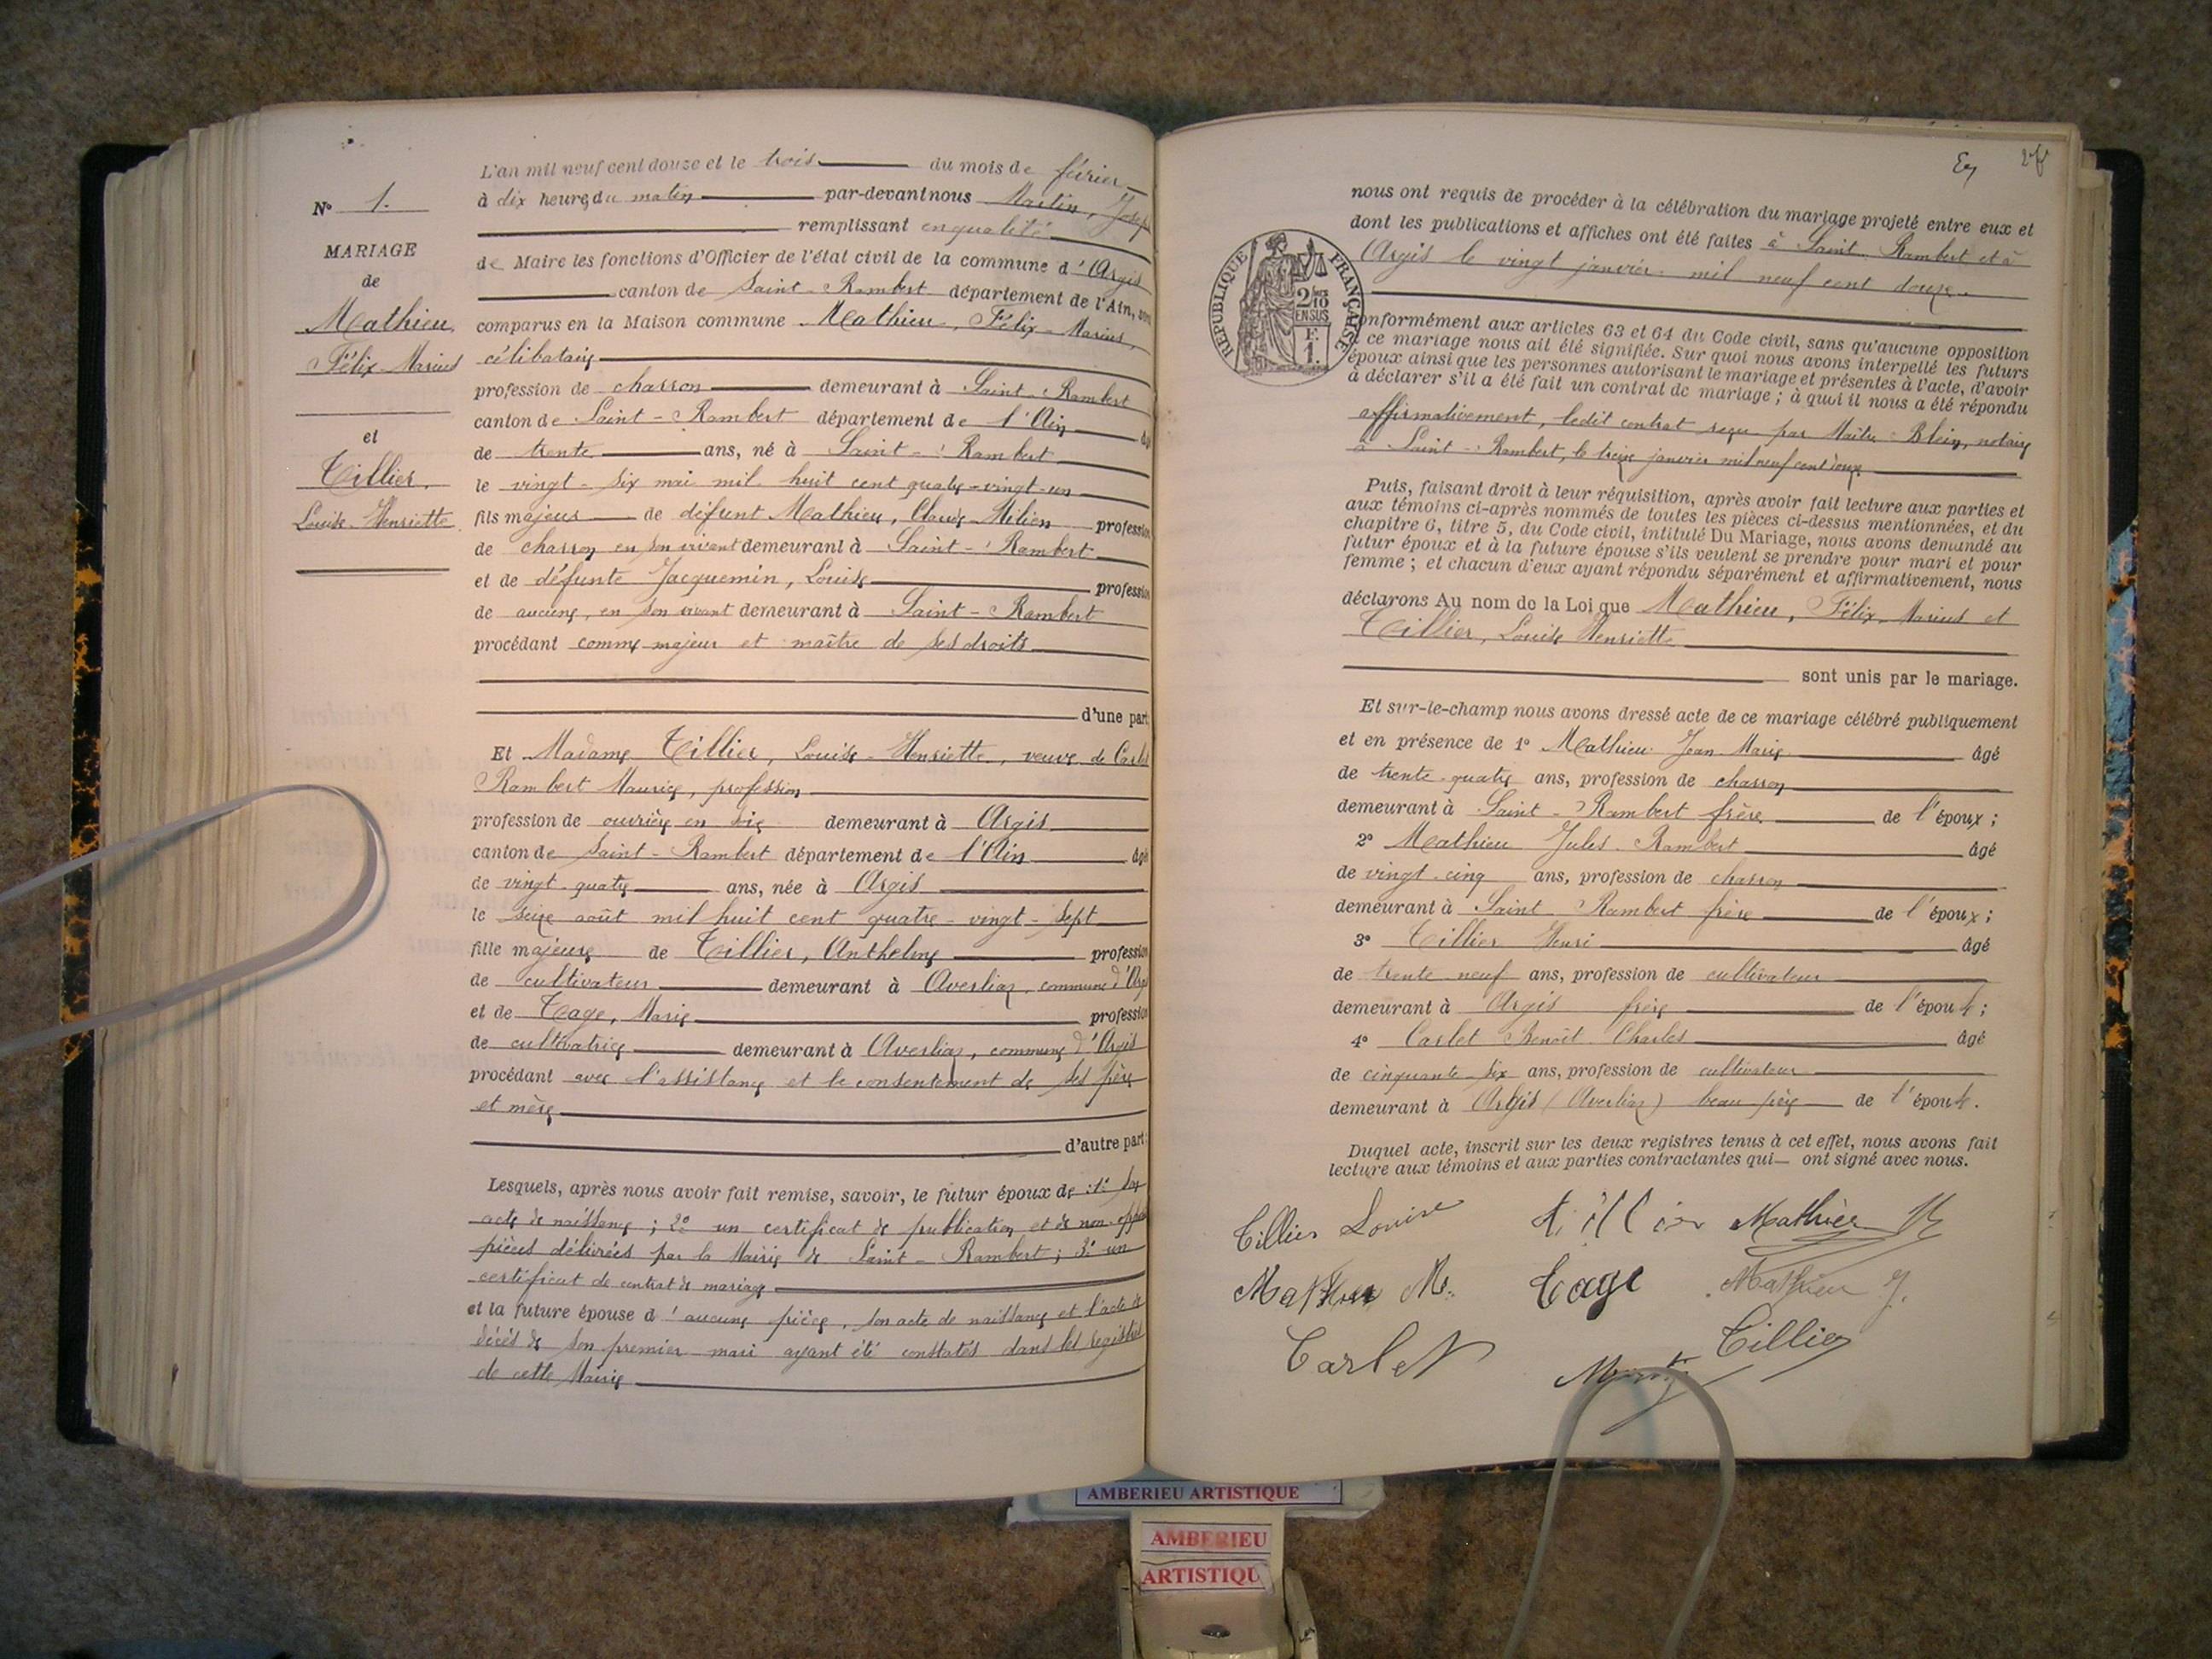 N° 1.
MARIAGE
de
Mathieu
Félix-Marius
et
Tillier,
Louise-Henriette
L'an mil neuf cent douze et le trois du mois de février
à dix heures du matin par-devant nous Martin, Joseph
remplissant en qualité
de Maire les fonctions d'Officier de l'état civil de la commune d'Argis
canton de Saint-Rambert département de l'Ain, sont
comparus en la Maison commune Mathieu, Félix-Marius,
célibataire
profession de charron demeurant à Saint-Rambert
canton de Saint-Rambert département de l'Ain âgé
de trente ans, né à Saint-Rambert
le vingt-six mai mil huit cent quatre-vingt-un
fils majeur de défunt Mathieu, Claude-Milien profession
de charron en son vivant demeurant à Saint-Rambert
et de défunte Jacquemin, Louise profession
de aucune, en son vivant demeurant à Saint-Rambert
procédant comme majeur et maître de ses droits
d'une part
Et Madame Tillier, Louise-Henriette, veuve de Carlet
Rambert Maurice, profession
profession de ouvrière en soie demeurant à Argis
canton de Saint-Rambert département de l'Ain âgé
de vingt-quatre ans, née à Argis
le seize août mil huit cent quatre-vingt-sept
fille majeure de Tillier, Anthelme profession
de cultivateur demeurant à Averliaz, commune d'Argis
et de Tage, Marie profession
de cultivatrice demeurant à Averliaz, commune d'Argis
procédant avec l'assistance et le consentement de ses père
et mère
d'autre part:
Lesquels, après nous avoir fait remise, savoir, le futur époux de: 1° son
acte de naissance; 2° un certificat de publication et de non-opposition
pièces délivrées par la Mairie de Saint-Rambert; 3° un
certificat de contrat de mariage
et la future épouse d'aucune pièce, son acte de naissance et l'acte de
décès de son premier mari ayant été constatés dans les registres
de cette Mairie
nous ont requis de procéder à la célébration du mariage projeté entre eux et
dont les publications et affiches ont été faites à Saint-Rambert et à
Argis le vingt janvier mil neuf cent douze.
RÉPUBLIQUE FRANÇAISE
2/10
EN SUS
F.
1.
conformément aux articles 63 et 64 du Code civil, sans qu'aucune opposition
à ce mariage nous ait été signifiée. Sur quoi nous avons interpellé les futurs
époux ainsi que les personnes autorisant le mariage et présentes à l'acte, d'avoir
à déclarer s'il a été fait un contrat de mariage; à quoi il nous a été répondu
affirmativement, ledit contrat reçu par Maître Blein, notaire
à Saint-Rambert, le treize janvier mil neuf cent douze
Puis, faisant droit à leur réquisition, après avoir fait lecture aux parties et
aux témoins ci-après nommés de toutes les pièces ci-dessus mentionnées, et du
chapitre 6, titre 5, du Code civil, intitulé Du Mariage, nous avons demandé au
futur époux et à la future épouse s'ils veulent se prendre pour mari et pour
femme; et chacun d'eux ayant répondu séparément et affirmativement, nous
déclarons Au nom de la Loi que Mathieu, Félix-Marius et
Tillier, Louise Henriette
sont unis par le mariage.
Et sur-le-champ nous avons dressé acte de ce mariage célébré publiquement
et en présence de 1° Mathieu Jean-Marie âgé
de trente-quatre ans, profession de charron
demeurant à Saint-Rambert frère de l'époux;
2° Mathieu Jules-Rambert âgé
de vingt-cinq ans, profession de charron
demeurant à Saint-Rambert frère de l'époux;
3° Tillier Henri âgé
de trente neuf ans, profession de cultivateur
demeurant à Argis frère de l'épouse;
4° Carlet Benoît-Charles âgé
de cinquante-six ans, profession de cultivateur
demeurant à Argis (Averliaz) beau père de l'épouse.
Duquel acte, inscrit sur les deux registres tenus à cet effet, nous avons fait
lecture aux témoins et aux parties contractantes qui ont signé avec nous.
Tillier Louise Tillier Mathieu
Mathieu M. Tage Mathieu J.
Carlet Tillier
AMBERIEU ARTISTIQUE
AMBERIEU
ARTISTIQU